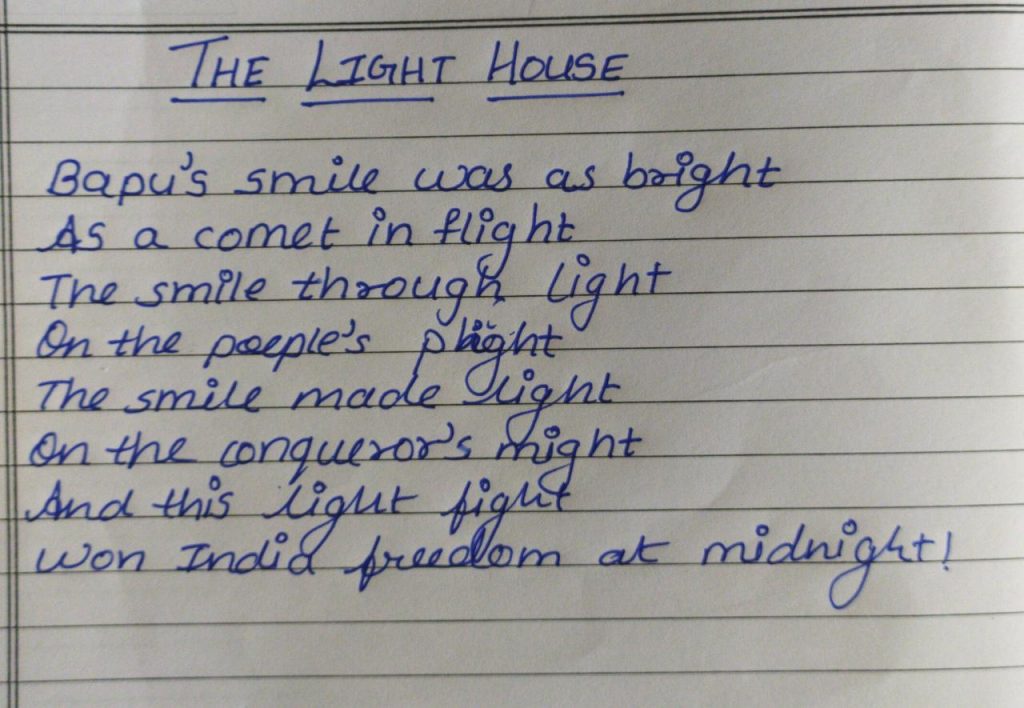 THE LIGHT HOUSE
Bapu's smile was as bright
As a comet in flight
The smile through light
On the poeple's plight
The smile made light
On the conqueror's might
And this light fight
Won India freedom at midnight!